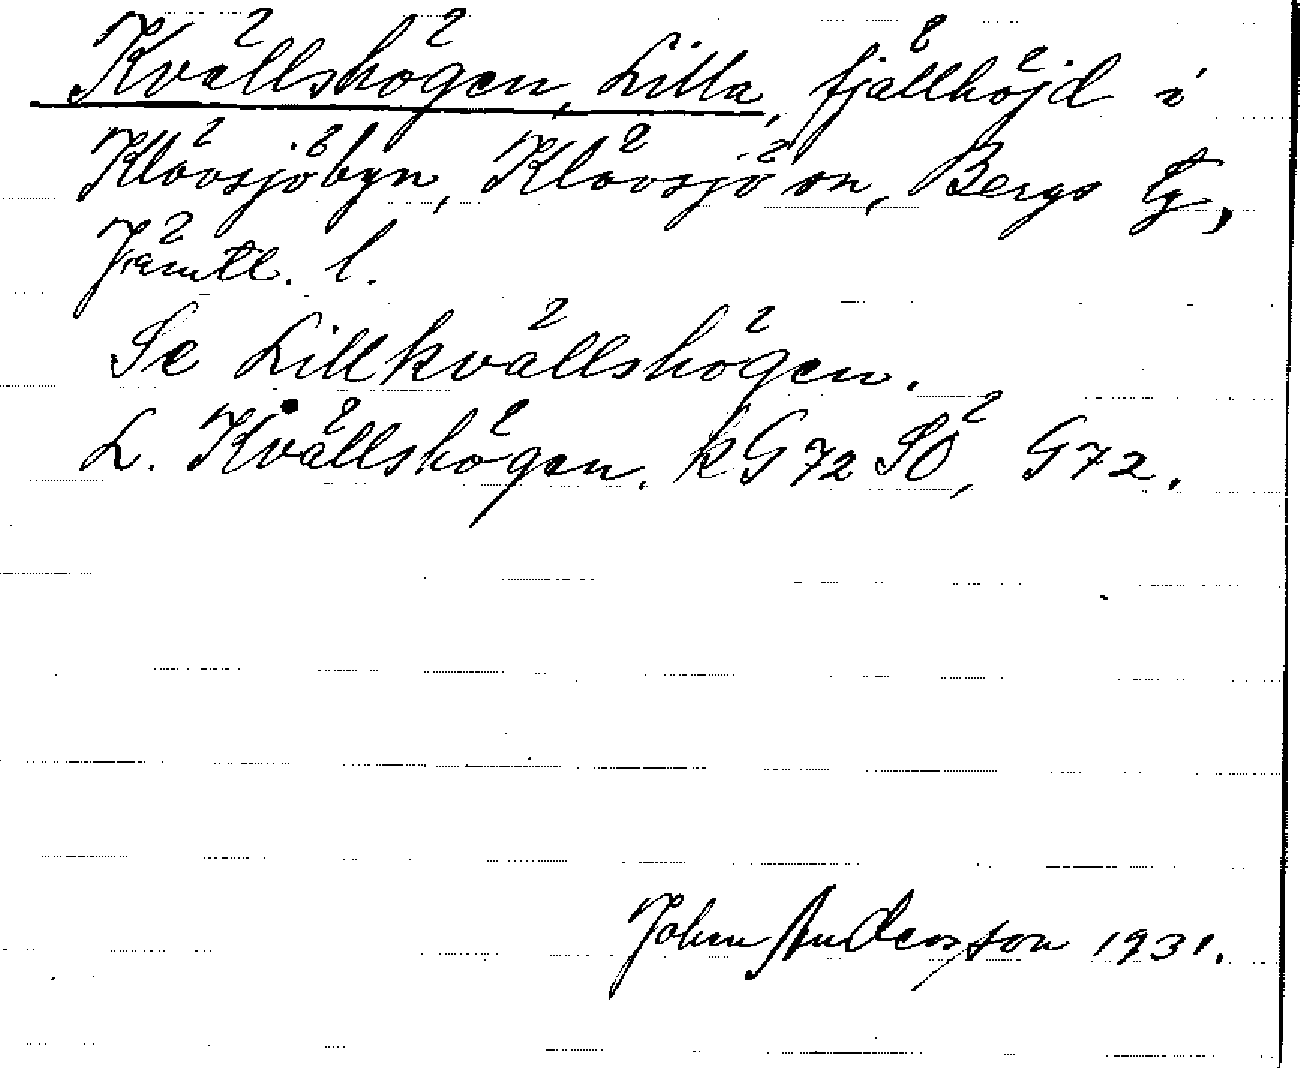 Kvällshögen, Lilla, fjällhöjd i
Klövsjöbyn, Klövsjö sn, Bergs tg,
Jämtl. l.
Se Lillkvällshögen.
L. Kvällshögen. kG72SÖ, G72.
John Andersson 1931.